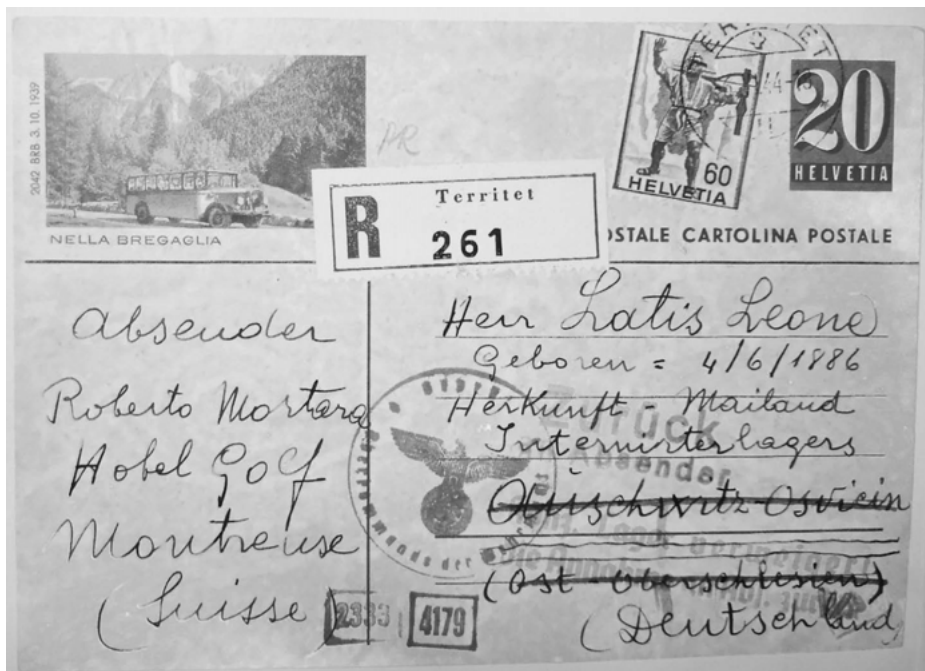 2042 BRB 3.10.1939
NELLA BREGAGLIA
R
Territet
261
60
HELVETIA
20
HELVETIA
OSTALE CARTOLINA POSTALE
Absender
Roberto Mortara
Hotel Golf
Montreuse
(Suisse)
2333
4179
Herr Latis Leone
Geboren = 4/6/1886
Herkunft - Mailand
Internirterlagers
Auschwitz-Osvicin
(Ost-Oberschlesien)
(Deutschland)
Zurück
Absender
Lager verweigert
die Annahme
der Wehrmacht